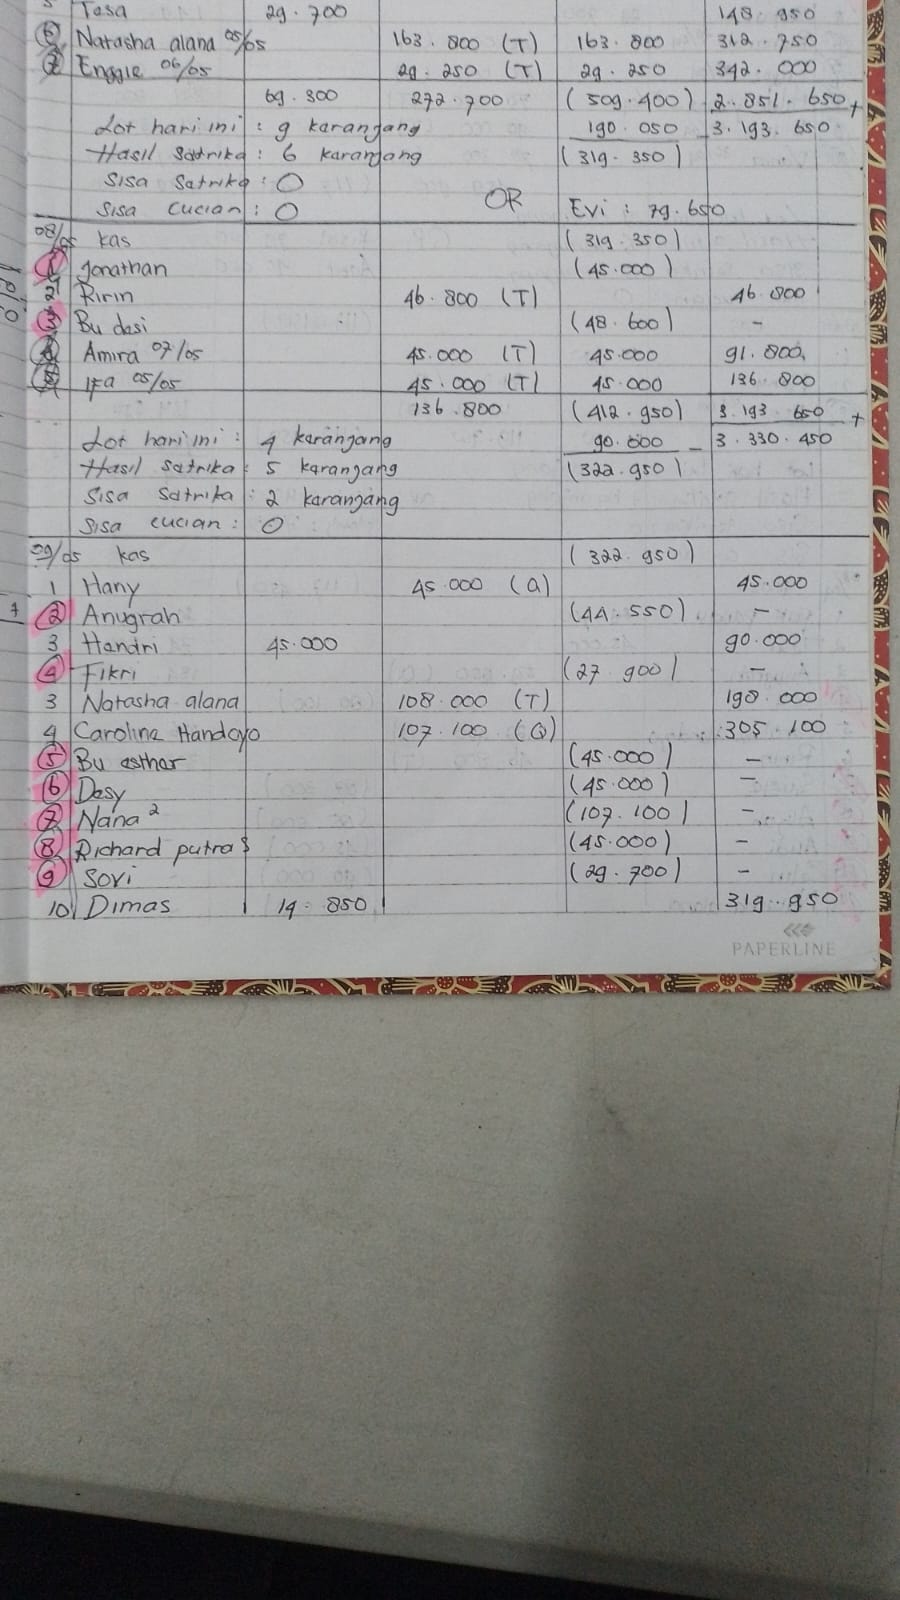 5 Tasa 29.700 148.950
6 Natasha alana 05/05 163.800 (T) 163.800 312.750
7 Enggie 06/05 29.250 (T) 29.250 342.000
69.300 272.700 (509.400) 2.851.650 +
Lot hari ini : 9 karangang 190.050 - 3.193.650
Hasil Satrika : 6 karangang (319.350)
Sisa Satrika : 0
Sisa Cucian : 0 OR Evi : 79.650
08/05 kas (319.350)
1 Jonathan (45.000)
2 Ririn 46.800 (T) 46.800
3 Bu desi (48.600) -
4 Amira 07/05 45.000 (T) 45.000 91.800
5 IFa 05/05 45.000 (T) 45.000 136.800
136.800 (412.950) 3.193.650 +
Lot hari ini : 4 karangang 90.000 - 3.330.450
Hasil Satrika : 5 karangang (322.950)
Sisa Satrika : 2 karangang
Sisa cucian : 0
09/05 kas (322.950)
1 Hany 45.000 (Q) 45.000
2 Anugrah (44.550) -
3 Hendri 45.000 90.000
4 Fikri (27.900) -
3 Natasha alana 108.000 (T) 198.000
4 Caroline Handoyo 107.100 (Q) 305.100
5 Bu esther (45.000) -
6 Desy (45.000) -
7 Nana² (107.100) -
8 Richard putra S (45.000) -
9 Sovi (29.700) -
10 Dimas 14.850 319.950
PAPERLINE